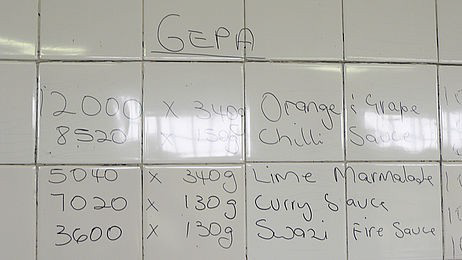 GEPA
2000 x 340g Orange & Grape
8520 x 150g Chilli Sauce
5040 x 340g Lime Marmalade
7020 x 130g Curry Sauce
3600 x 130g Swazi Fire Sauce